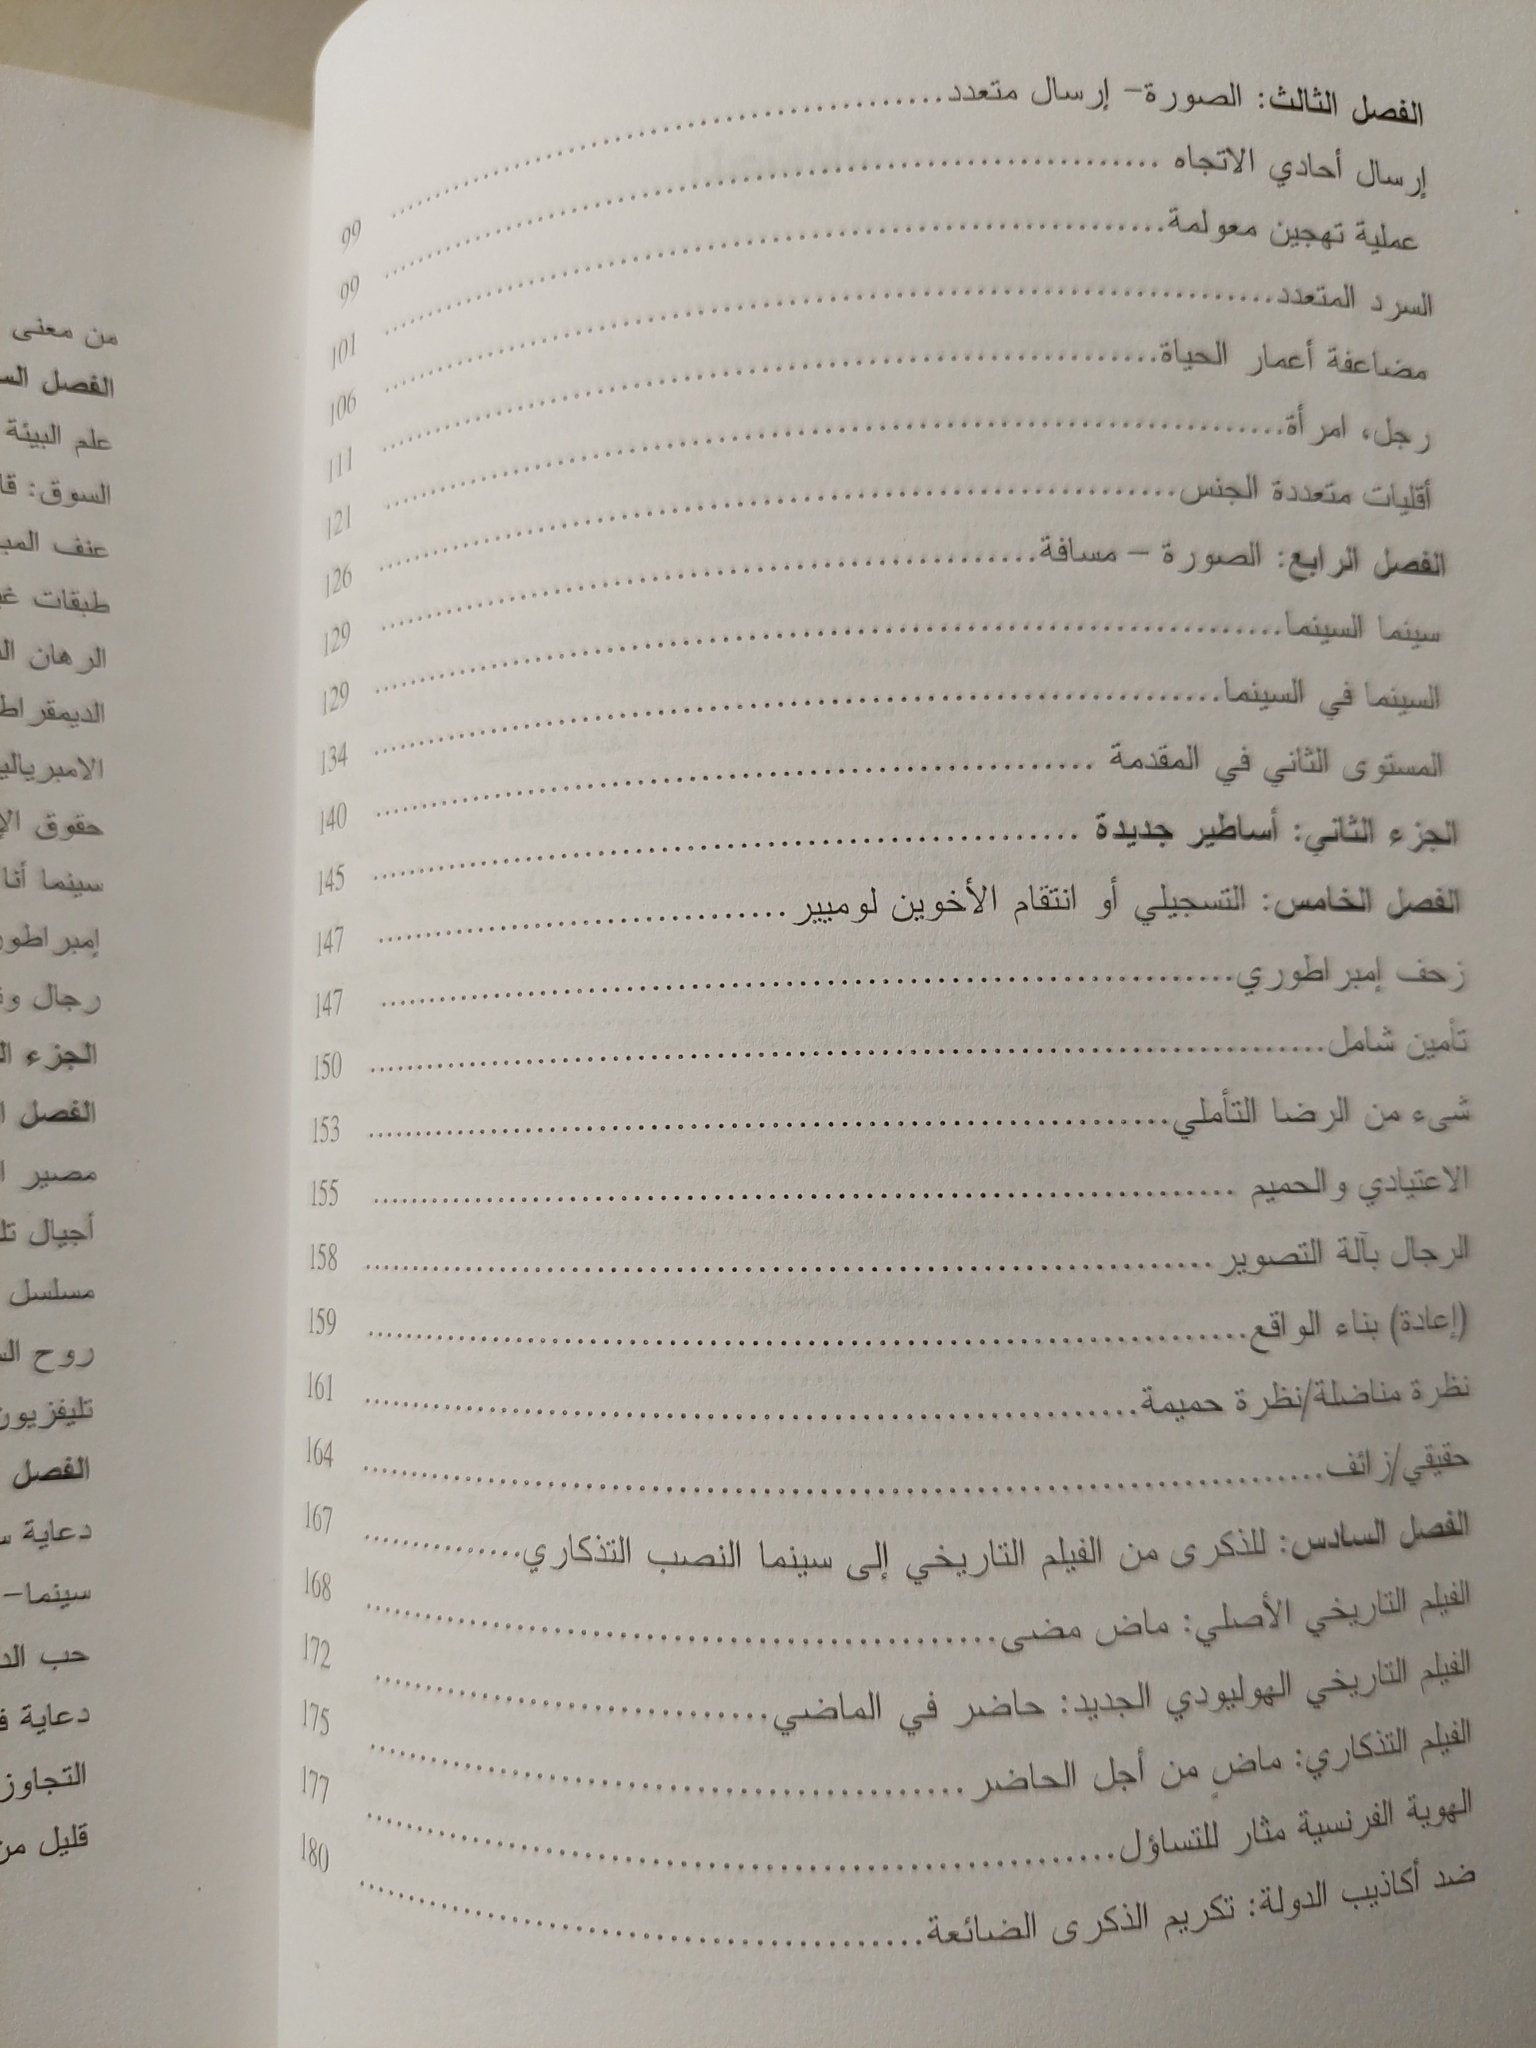 الفصل الثالث: الصورة– إرسال متعدد........ 99
إرسال أحادي الاتجاه ........ 99
عملية تهجين معولمة........ 101
السرد المتعدد........ 106
مضاعفة أعمار الحياة........ 111
رجل، امرأة........ 121
أقليات متعددة الجنس........ 126
الفصل الرابع: الصورة – مسافة........ 129
سينما السينما........ 129
السينما في السينما........ 134
المستوى الثاني في المقدمة ........ 140
الجزء الثاني: أساطير جديدة ........ 145
الفصل الخامس: التسجيلي أو انتقام الأخوين لوميير........ 147
زحف إمبراطوري........ 147
تأمين شامل........ 150
شىء من الرضا التأملي........ 153
الاعتيادي والحميم ........ 155
الرجال بآلة التصوير........ 158
(إعادة) بناء الواقع........ 159
نظرة مناضلة/نظرة حميمة........ 161
حقيقي/زائف........ 164
الفصل السادس: للذكرى من الفيلم التاريخي إلى سينما النصب التذكاري........ 167
الفيلم التاريخي الأصلي: ماض مضى........ 168
الفيلم التاريخي الهوليودي الجديد: حاضر في الماضي........ 172
الفيلم التذكاري: ماضٍ من أجل الحاضر........ 175
الهوية الفرنسية مثار للتساؤل........ 177
ضد أكاذيب الدولة: تكريم الذكرى الضائعة........ 180
من معنى
الفصل
علم البيئة
السوق:
عنف
طبقات
الرهان
حقوق
سينما أنا
رجال
الجزء
الفصل
مصير
أجيال
مسلسل
روح
الفصل
دعاية
سينما–
حب
دعاية
التجاوز
قليل